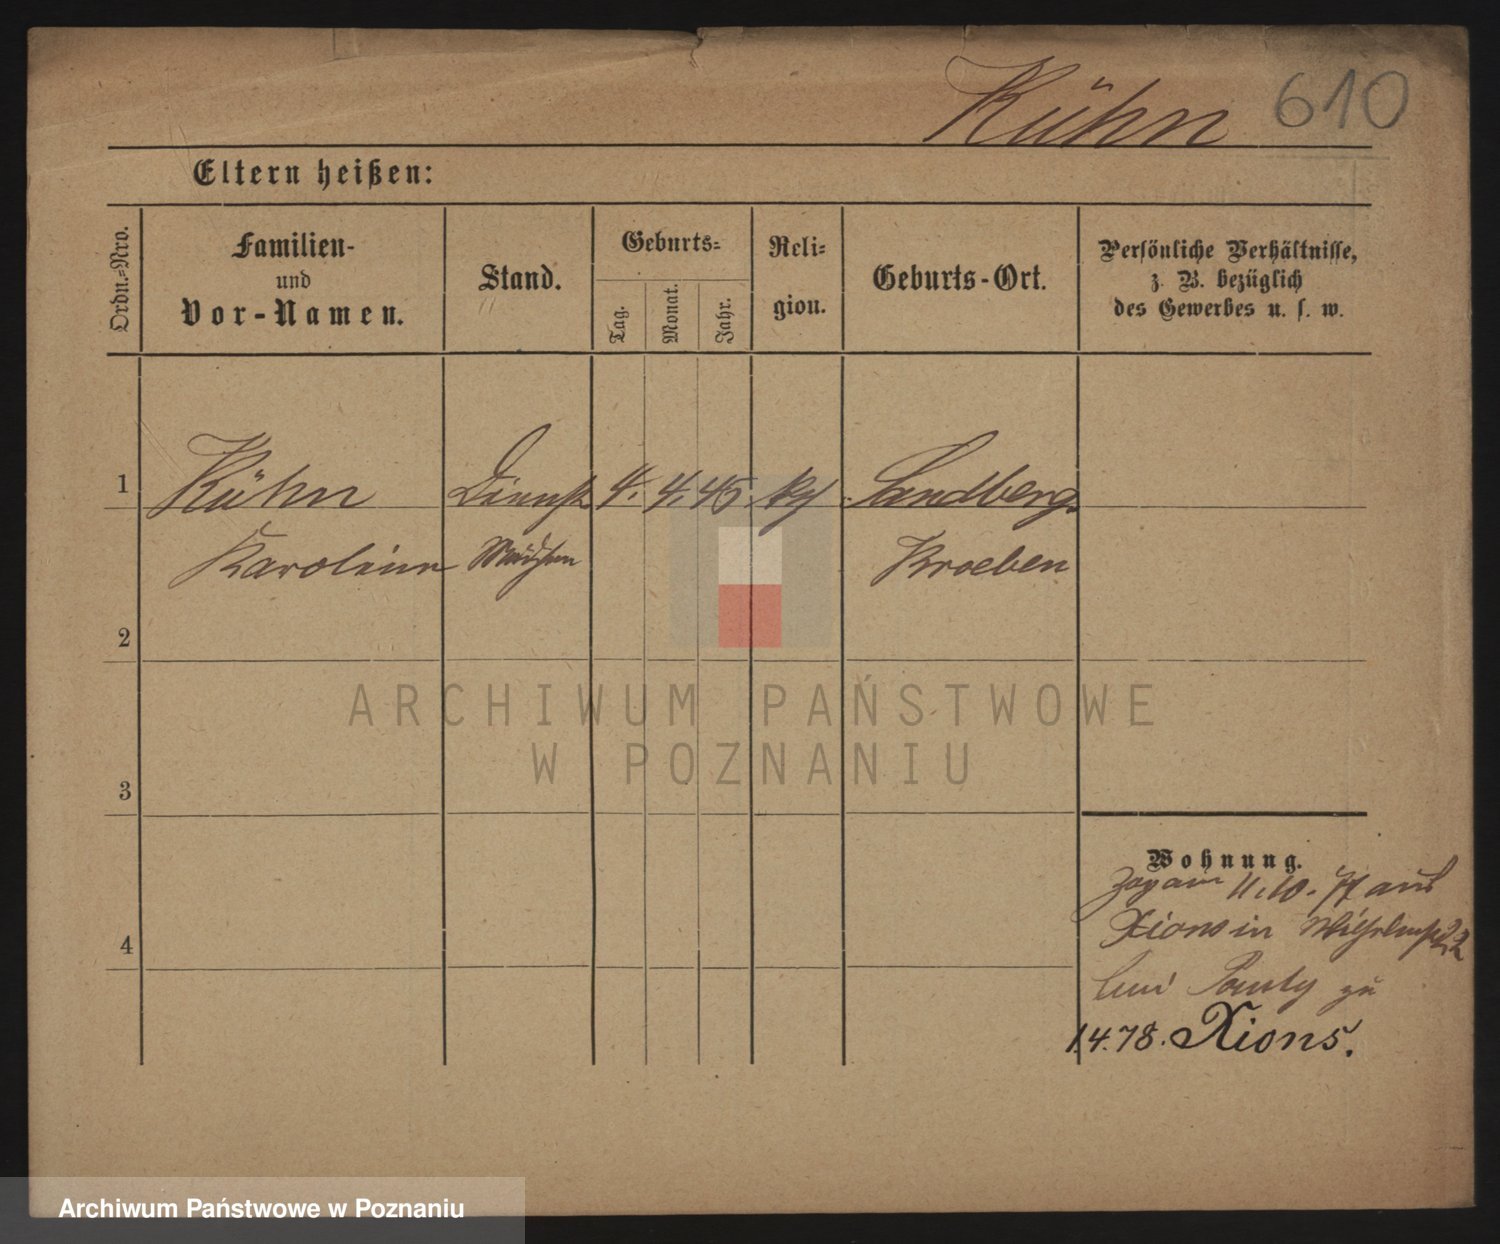 Kühn 610
Eltern heißen:
Ordn.-Nro.
Familien-
und
Vor-Namen.
Stand.
Geburts-
Tag.
Monat.
Jahr.
Reli-
gion.
Geburts-Ort.
Persönliche Verhältnisse,
z. B. bezüglich
des Gewerbes u. s. w.
1 Kühn Dienst 4. 4. 45. Sandberg
Karoline Mädchen Kroeben
2
ARCHIWUM PAŃSTWOWE
W POZNANIU
3
Wohnung.
11.10.77 aus
Xions in
4
bei Pauly zu
1.4.78. Xions.
Archiwum Państwowe w Poznaniu